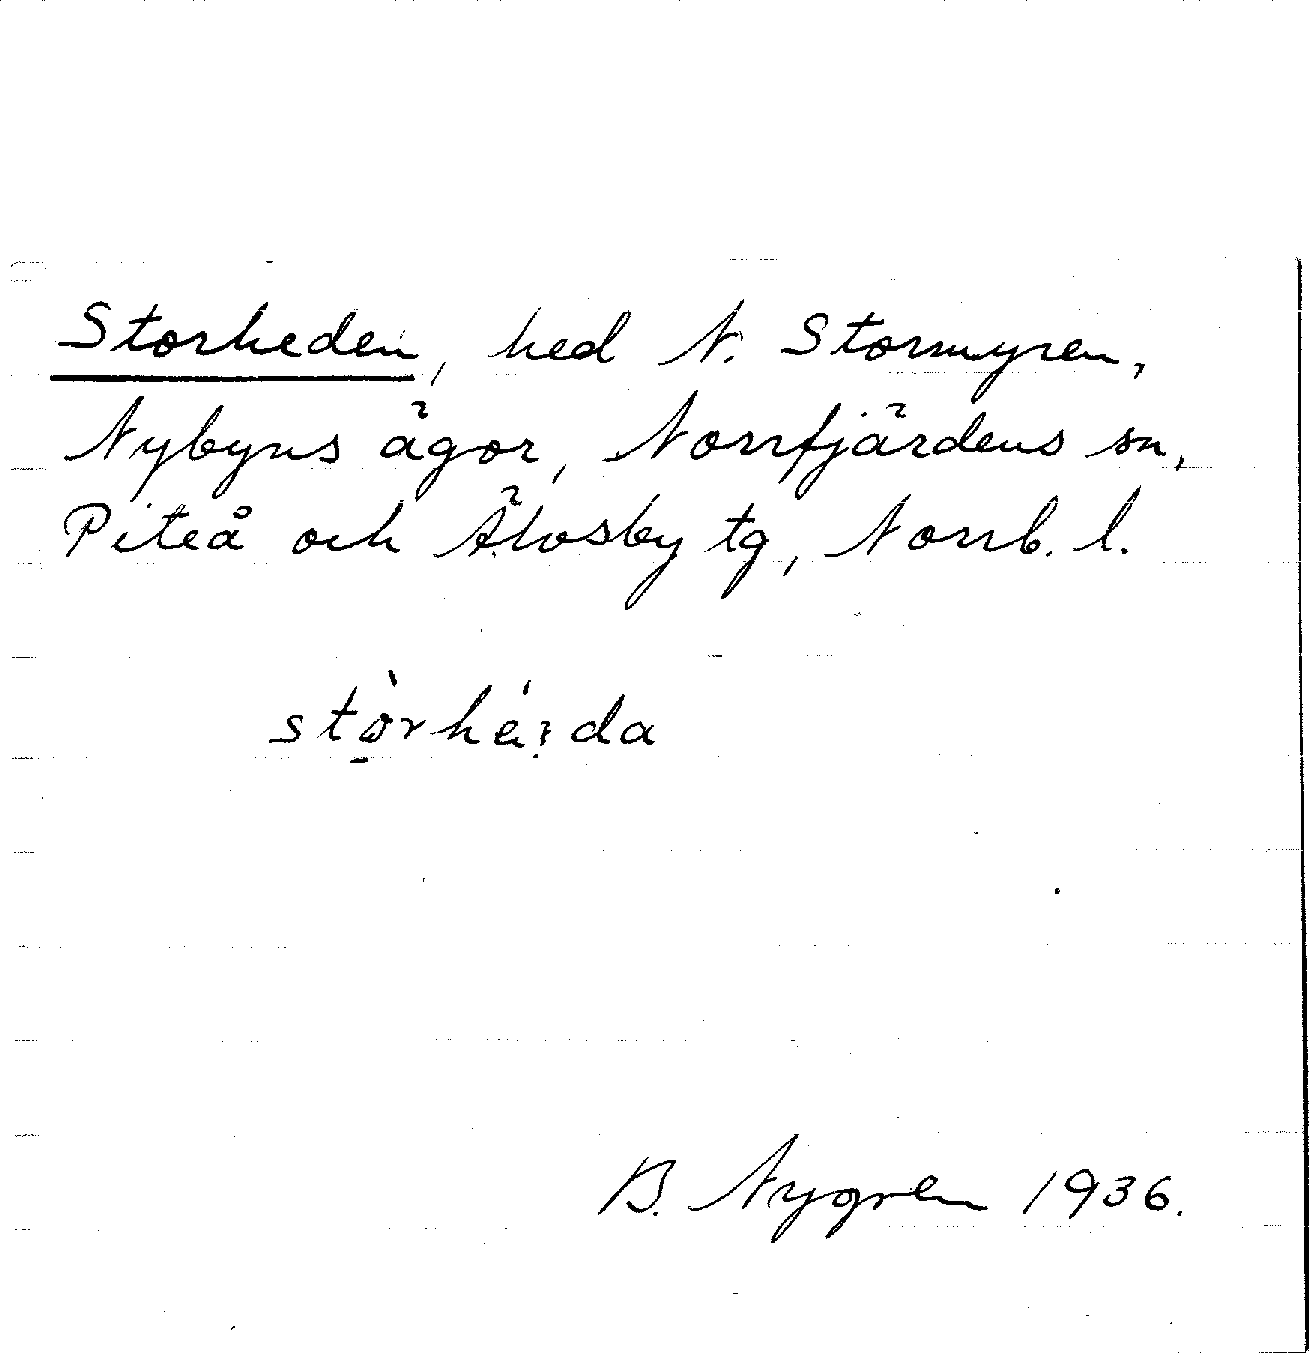 Storheden, hed N. Stormyren,
Nybyns ägor, Norrfjärdens sn,
Piteå och Älvsby tg, Norrb. l.
stò̱rhé:da
B. Nygren 1936.